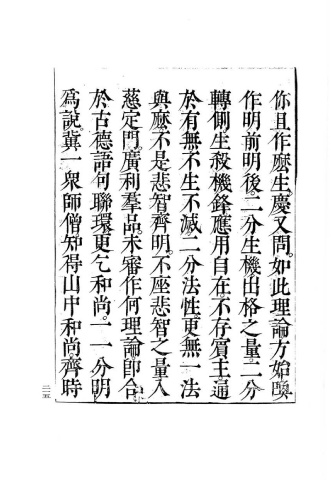 你且作麽生慶又問。如此理論方始喚
作明前明後。二分生機出格之量二分
轉側生殺機鋒應用自在不存賓主逼
於有無不生不滅二分法性更無一法
與麽不是悲智齊明。不座悲智之量入
慈定門。廣利羣品未審作何理論即合
於古德語句聯環更乞和尚。一一分明
為說冀一衆師僧知得山中和尚齊時
二一五